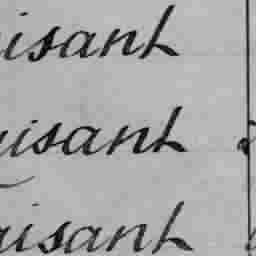 isant
isant
aisant